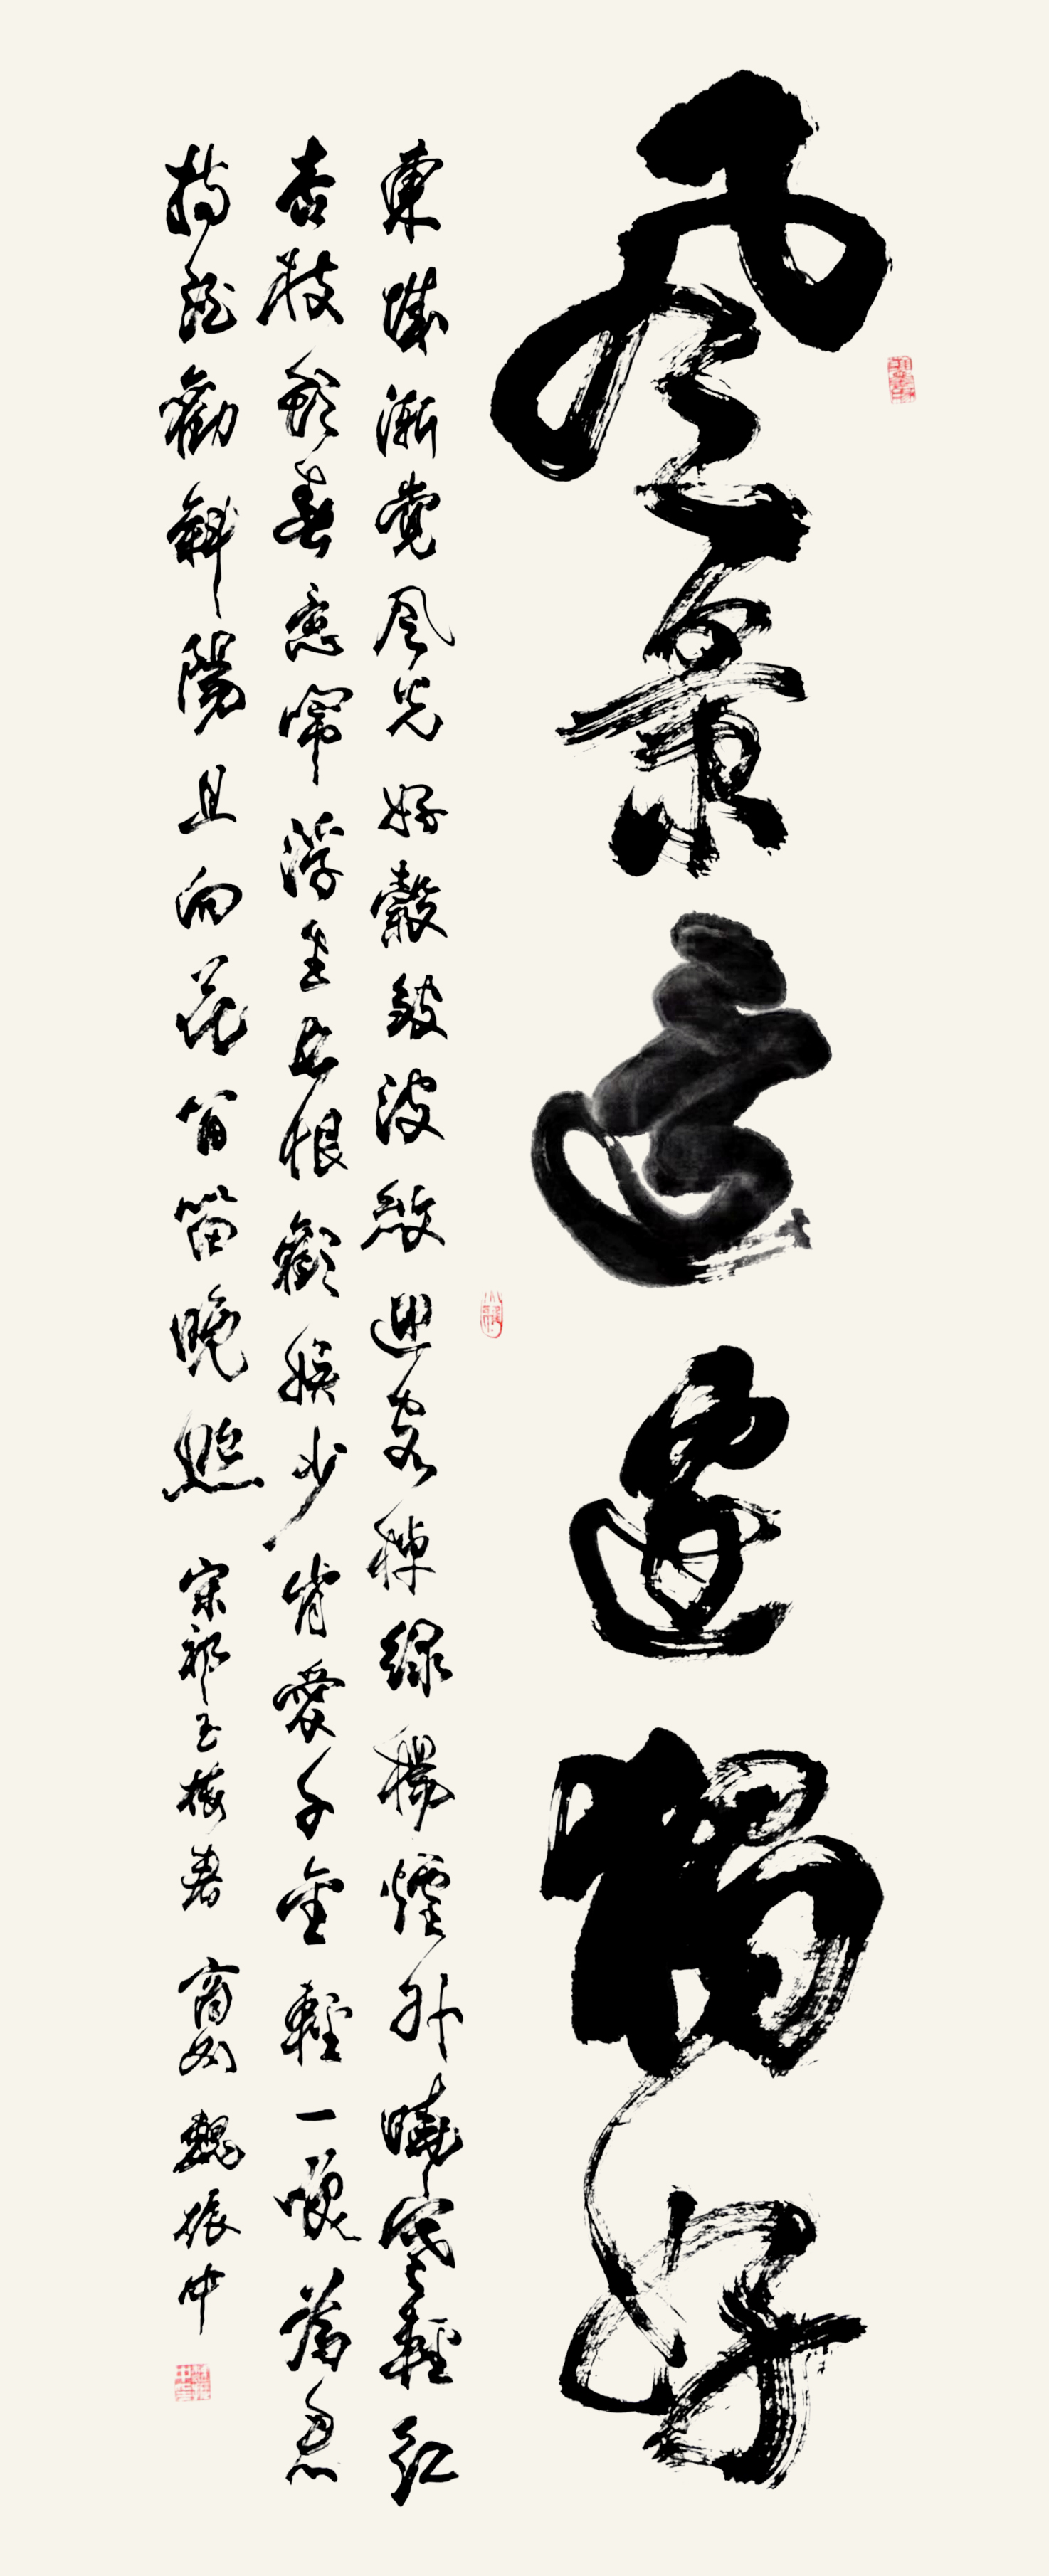 風景這邊獨好
東城漸覺風光好縠皺波紋迎客棹綠楊煙外曉寒輕紅
杏枝頭春意鬧浮生長恨歡娛少肯愛千金輕一咲為君
持酒勸斜陽且向花間留晚照 宋祁玉樓春 商 魏振中